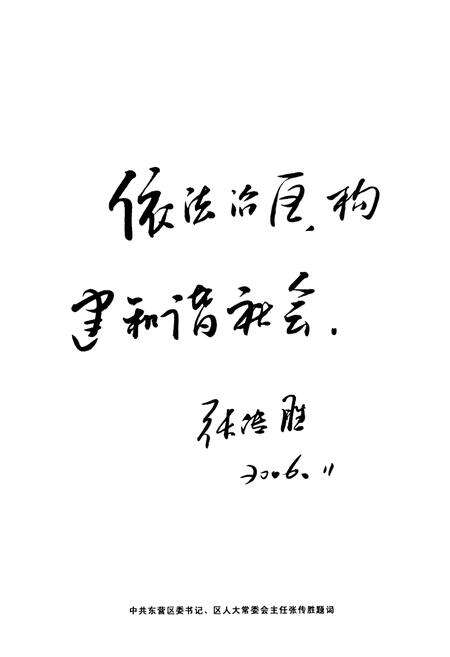 依法治区，构
建和谐社会．
张传胜
2006.11
中共东营区委书记、区人大常委会主任张传胜题词